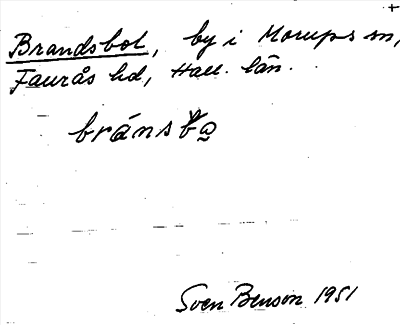 +
Brandsbol, by i Morups sn,
Faurås hd, Hall. län.
bránsba
Sven Benson 1951